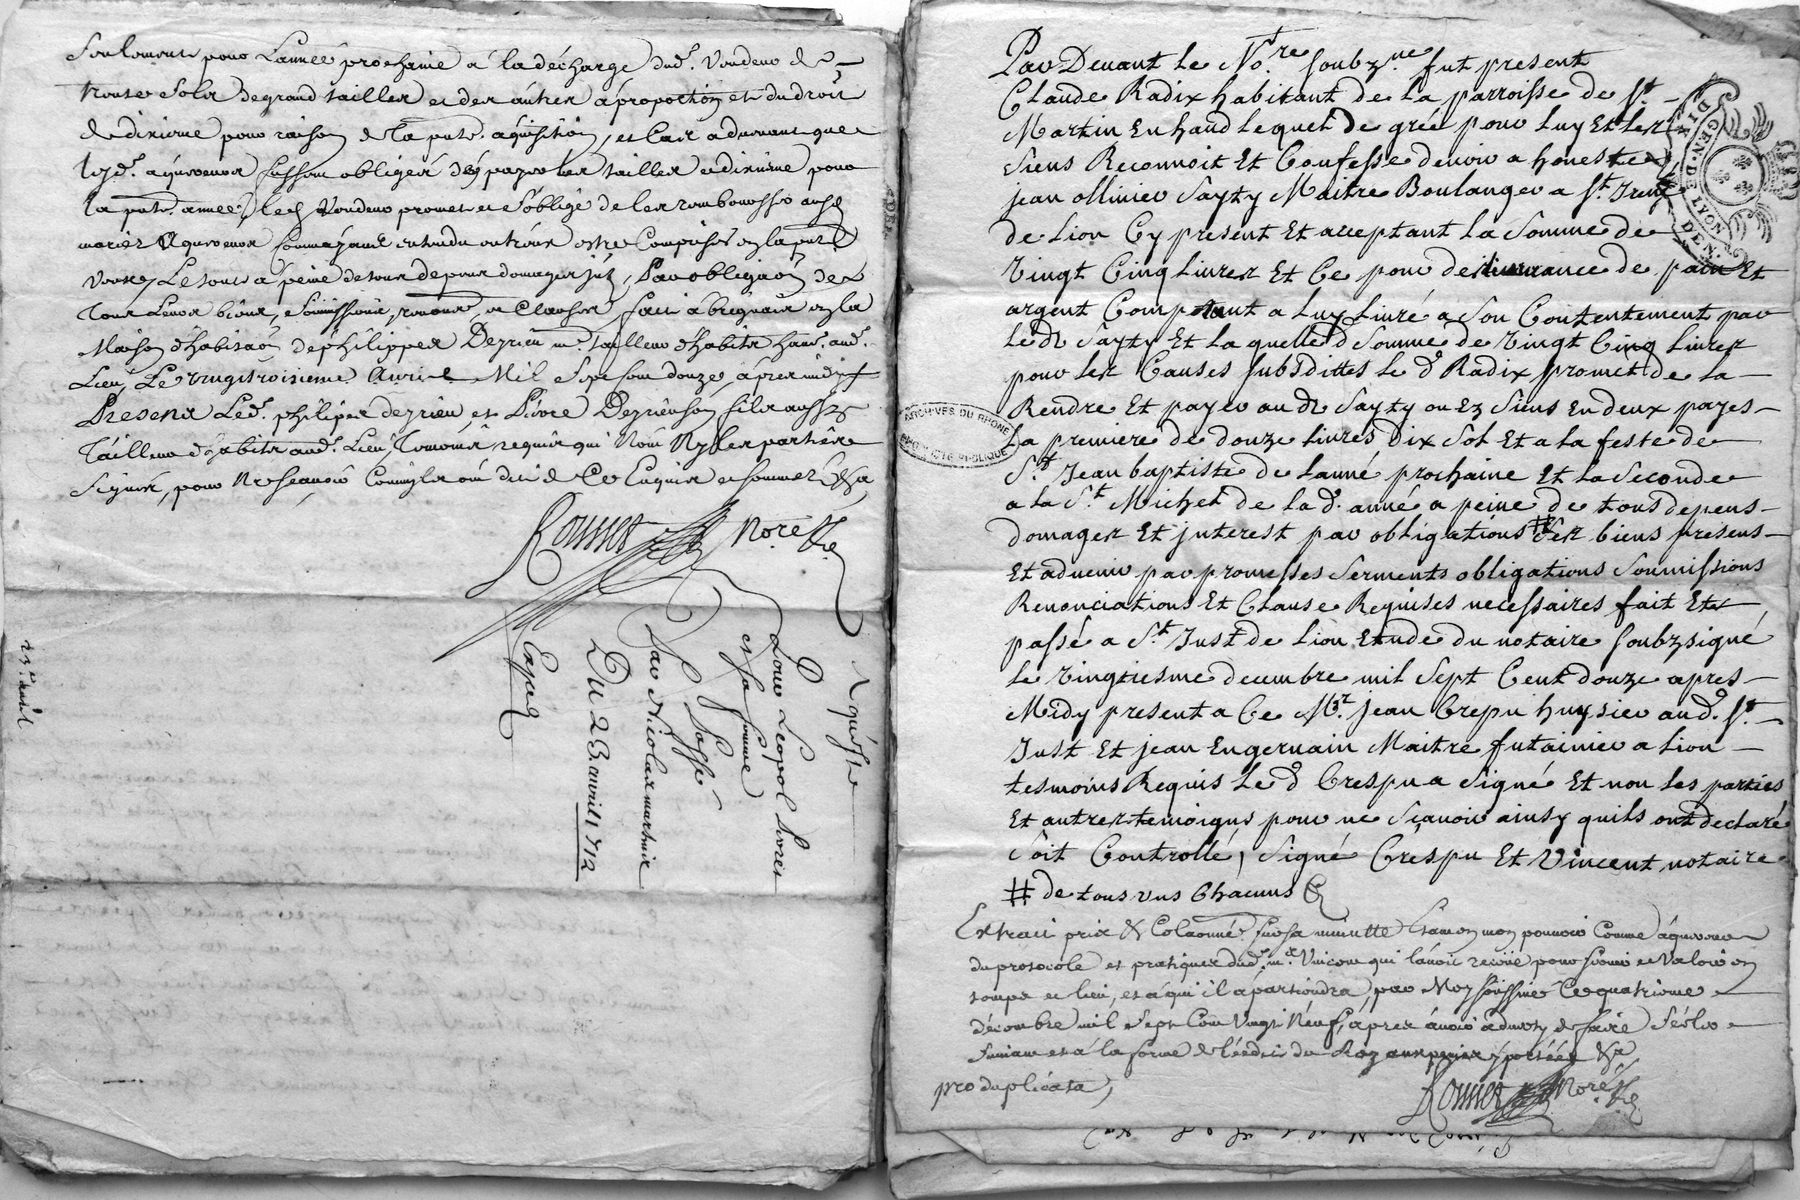 seulement pour l'année prochaine a la décharge dud. vendeur de
trente sols de grand tailles et des autres a proportion et du droit
de dixieme pour raison de la pnte. aquisition, et cas advenant que
lesd. aquereurs fussent obligés de payer les tailles et dixieme pour
la pnte. année, led. vendeur promet et s'oblige de les rembourser
mariez aquereurs comme ayant entendu entrer estre compris en la pnte.
vente, le tout a peine de tous depens domages jts, par obligaon de
tous leurs biens, soumissions, renons, et clauses, fait a brignais en la
maison d'habitaon de philippe Deyrieu me. tailleur d'habits haud. aud.
lieu, Le vingt troisieme Avril Mil sept cent douze, apres midy
Presents Led. philippe deyrieu et Pierre Deyrieu son fils aussy
Tailleur d'habits aud. lieu, temoins requis qui n'ont ny les parties
signés, pour ne sçavoir comme ils ont dit de ce enquis et sommés &a
Rouner Nore. R.
Aquisst.
Pour Leopol livres
et sa femme
Par Nicolas martinie
Du 23 avril 1712
Exped.
23e. avril
Par Devant Le Nore. soubzne. fut present
Claude Radix habitant de la parroisse de St.
Martin En haud lequel de grée pour luy Et les
siens Reconnoit Et Confesse devoir a honeste
jean ollinier Sayty Maitre Boulanger a St. Irené
de Lion Cy present Et acceptant la Somme de
Vingt Cinq Livres Et Ce pour delivrance de pain Et
argent Comptant a luy livré a Son Contentement par
Le d. Sayty Et la quelle d. Somme de Vingt Cinq Livres
pour les Causes susdittes le d. Radix promet de la
Rendre Et payer au d. Sayty ou Ez Siens En deux payes
La premiere de douze livres Dix Sol Et a la feste de
St. Jean baptiste de lanné prochaine Et la Seconde
a la St. Michel de la d. anné a peine de tous depens
domages Et jnterest par obligations # des biens presens
Et advenir par promesses Serments obligations Soumissions
Renonciations Et Clauses Requises necessaires fait Et
passé a St. Just de Lion Etude du notaire Soubzsigné
le Vingtiesme decembre mil Sept Cent douze apres
Midy present a Ce Mr. jean Crepu huysier aud. St.
Just Et jean Engervain Maitre futainier a Lion
tesmoins Requis Le d. Crespu a Signé Et non les parties
Et autres temoigns pour ne Scavoir ainsy quils ont declaré
Soit Controllé, Signé Crespu Et Vincent notaire
# de tous uns Chacuns
Extrait pris & Colaonné sur sa minutte Etant en mon pouvoir Comme aquereur
du protocole et pratiques dud. me. Vincent qui l'avoit receüe pour servir et valoir en
temps et lieu, et a qui il apartiendra, par Moy soussigné Ce quatrieme
décembre mil Sept Cent Vingt Neuf, apres avoir adverty de faire
suivant et a la forme de l'édit du Roy aux peines y portées &a
pro duplicata,
Rouner Nore. R.
GEN. DE LYON
DIX DEN.
ARCHIVES DU RHONE